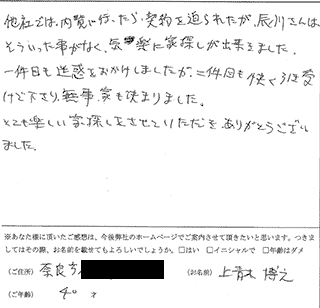 他社では、内覧に行ったら契約を迫られたが、辰川さんは
そういった事がなく、気楽に家探しが出来ました。
一件目も迷惑をおかけしましたが、二件目も快く引き受
けて下さり、無事、家も決まりました。
とても楽しい家探しをさせていただき、ありがとうござい
ました。
※あなた様に頂いたご感想は、今後弊社のホームページでご案内させて頂きたいと思います。つきま
してはその際、お名前を載せてもよろしいでしょうか。□はい □イニシャルで □年齢はダメ
(ご住所) 奈良市
(お名前) 上青木 博之
(ご年齢) 40 才